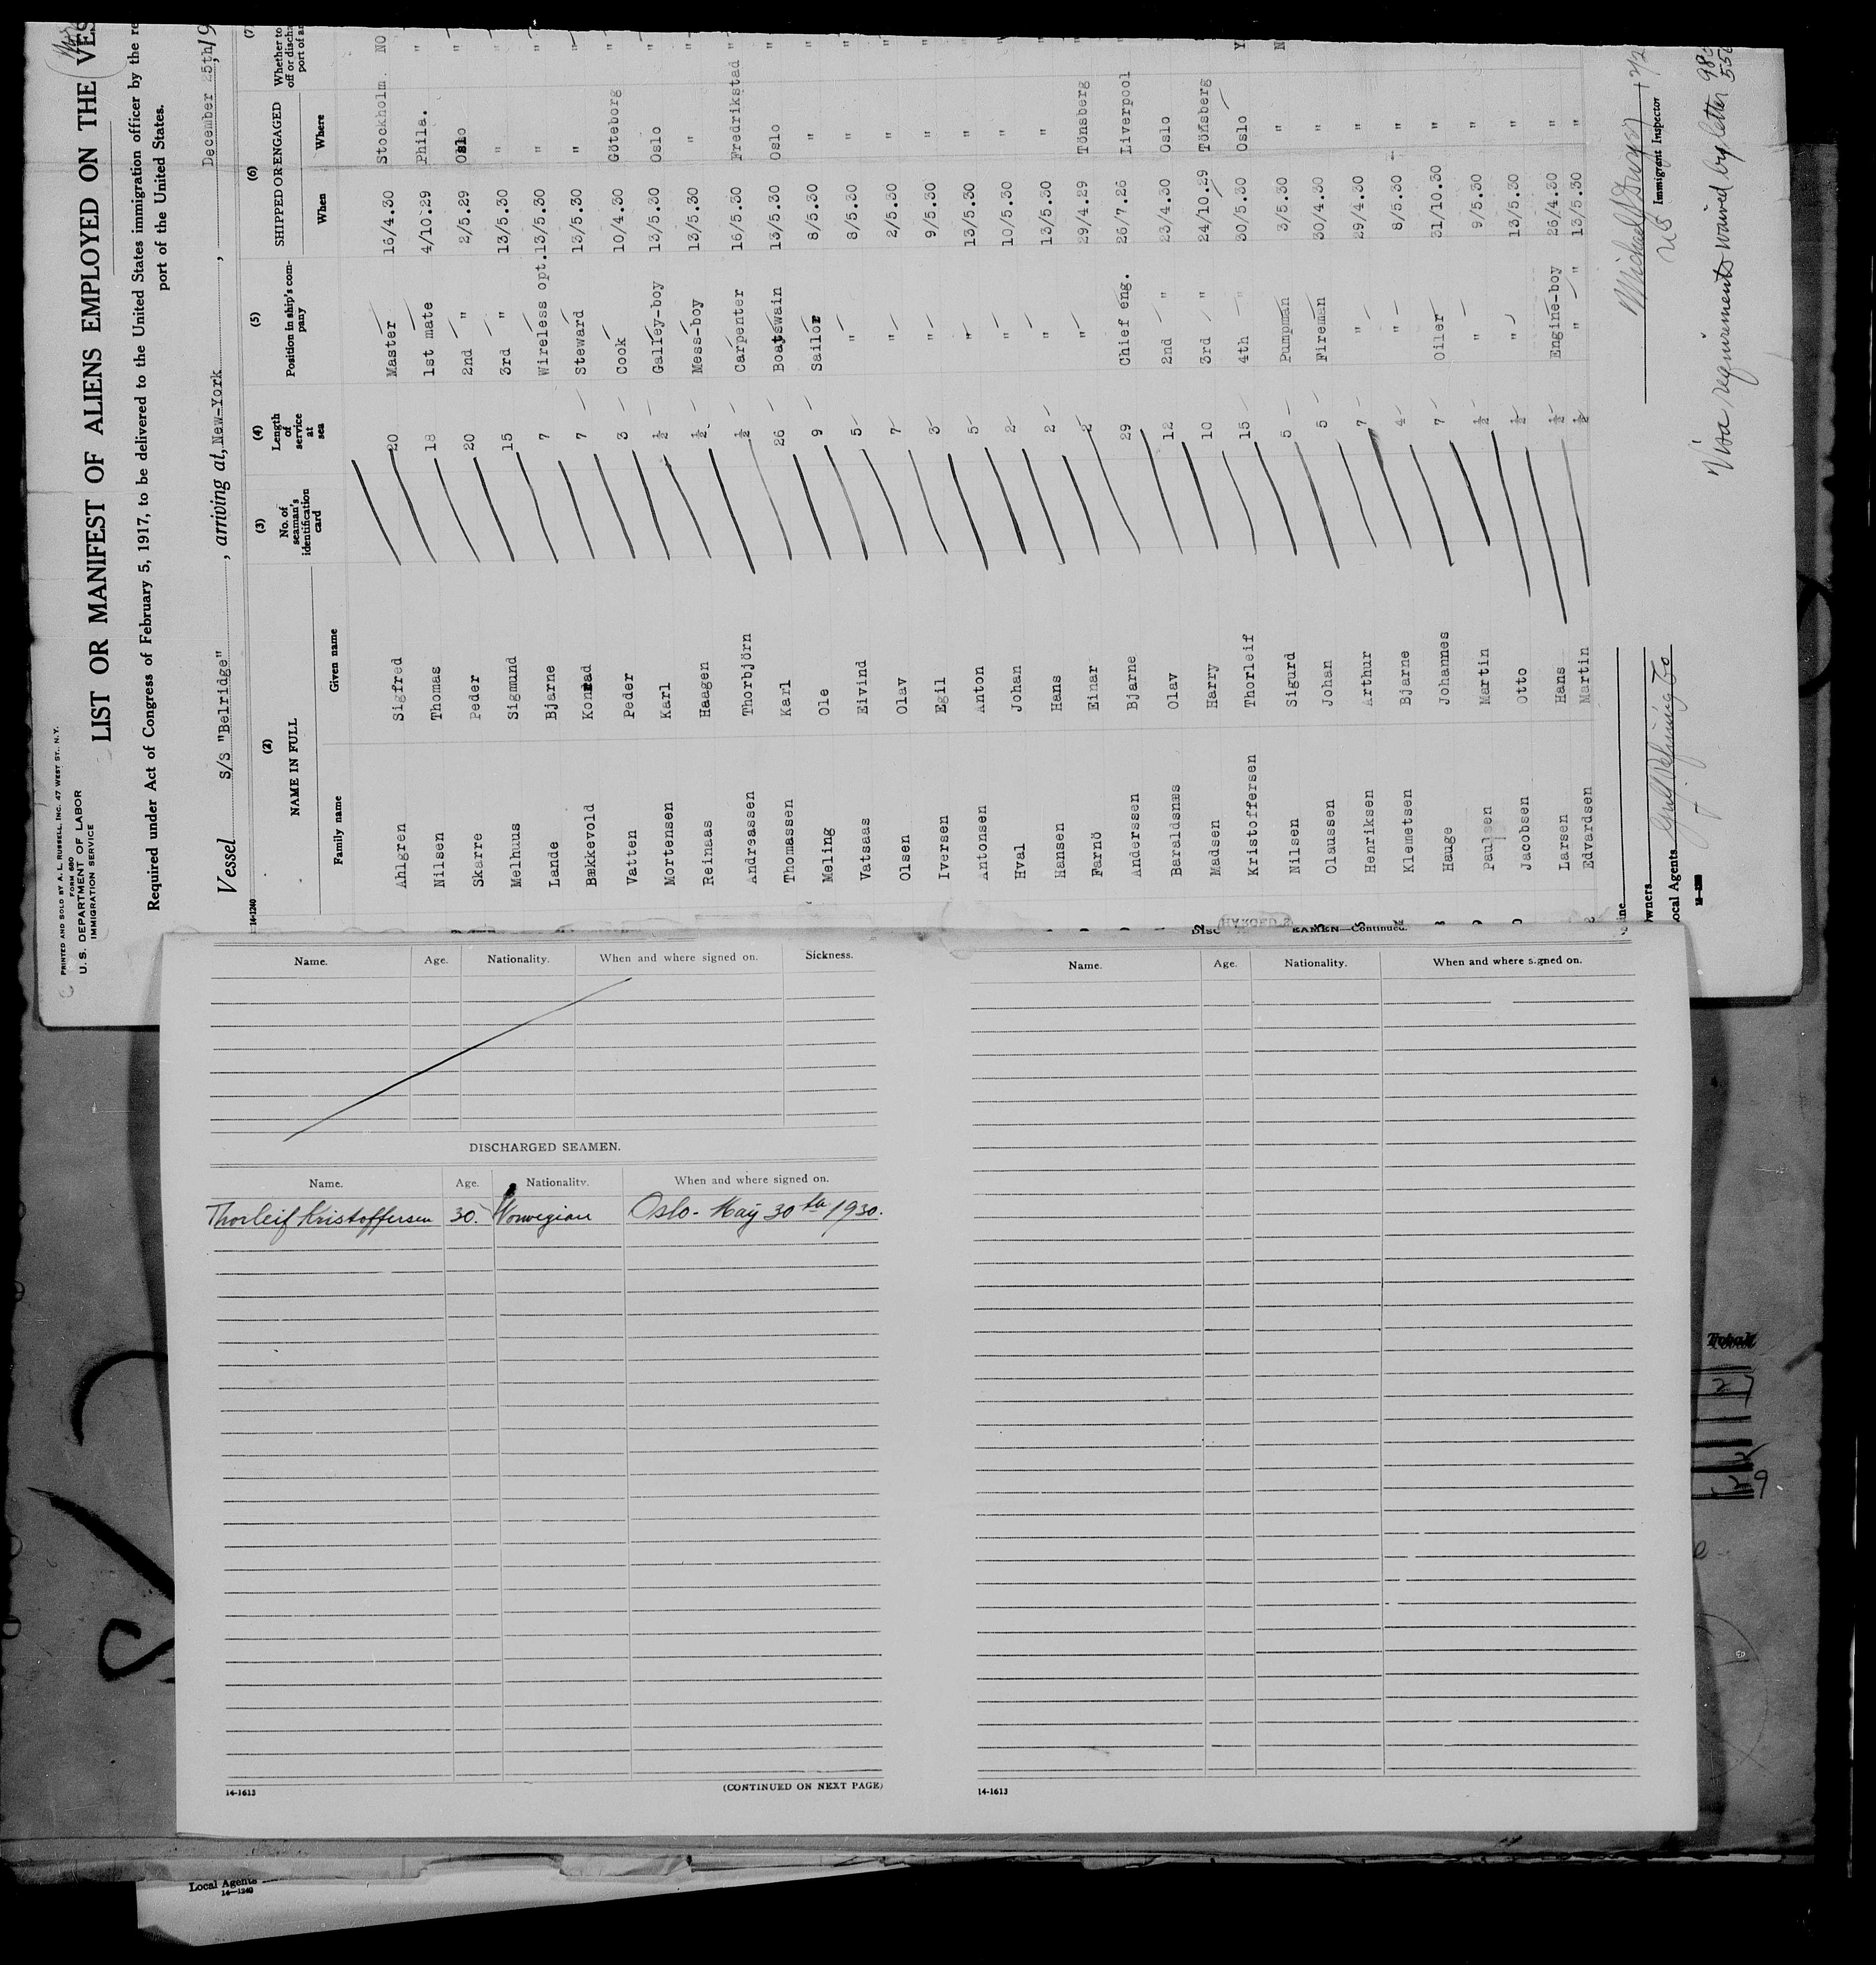 PRINTED AND SOLD BY A. L. RUSSELL, INC. 47 WEST ST., N.Y.
FORM 680
U. S. DEPARTMENT OF LABOR
IMMIGRATION SERVICE
LIST OR MANIFEST OF ALIENS EMPLOYED ON THE VES
Required under Act of Congress of February 5, 1917, to be delivered to the United States immigration officer by the re
port of the United States.
Vessel S/S "Belridge", arriving at, New-York, December 25th, 19
14-1240
(2) (3) (4) (5) (6) (7)
NAME IN FULL No. of seaman's identification card Length of service at sea Position in ship's company SHIPPED OR ENGAGED Whether to
off or discha
port of ar
Family name Given name When Where
Ahlgren Sigfred 20 Master 16/4.30 Stockholm. NO
Nilsen Thomas 18 1st mate 4/10.29 Phila. "
Skarre Peder 20 2nd " 2/5.29 Oslo "
Melhus Sigmund 15 3rd " 13/5.30 " "
Lande Bjarne 7 Wireless opt. 13/5.30 " "
Bækkevold Konrad 7 Steward 13/5.30 " "
Vatten Peder 3 Cook 10/4.30 Göteborg "
Mortensen Karl ½ Galley-boy 13/5.30 Oslo "
Reinaas Haagen ½ Mess-boy 13/5.30 " "
Andreassen Thorbjörn ½ Carpenter 16/5.30 Fredrikstad "
Thomassen Karl 26 Boatswain 13/5.30 Oslo "
Meling Ole 9 Sailor 8/5.30 " "
Vatsaas Eivind 5 " 8/5.30 " "
Olsen Olav 7 " 2/5.30 " "
Iversen Egil 3 " 9/5.30 " "
Antonsen Anton 5 " 13/5.30 " "
Hval Johan 2 " 10/5.30 " "
Hansen Hans 2 " 13/5.30 " "
Farnö Einar 2 " 29/4.29 Tönsberg "
Anderssen Bjarne 29 Chief eng. 26/7.26 Liverpool "
Baraldsnæs Olav 12 2nd " 23/4.30 Oslo "
Madsen Harry 10 3rd " 24/10.29 Tönsberg "
Kristoffersen Thorleif 15 4th " 30/5.30 Oslo Y
Nilsen Sigurd 5 Pumpman 3/5.30 " N
Olaussen Johan 5 Fireman 30/4.30 "
Henriksen Arthur 7 " 29/4.30 "
Klemetsen Bjarne 4 " 8/5.30 "
Hauge Johannes 7 Oiler 31/10.30 "
Paulsen Martin ½ " 9/5.30 "
Jacobsen Otto ½ " 13/5.30 "
Larsen Hans ½ Engine-boy 26/4.30 "
Edvardsen Martin ½ " " 13/5.30 "
ine
wners
ocal Agents Gulf Refining Co
Immigrant Inspector
Visa requirements waived by letter
EAMEN—Continued.
Name. Age. Nationality. When and where signed on. Sickness.
DISCHARGED SEAMEN.
Name. Age. Nationality. When and where signed on.
Thorleif Kristoffersen 30. Norwegian Oslo - May 30th 1930.
14-1613
(CONTINUED ON NEXT PAGE)
Name. Age. Nationality. When and where signed on.
14-1613
Total
Local Agents
14-1240